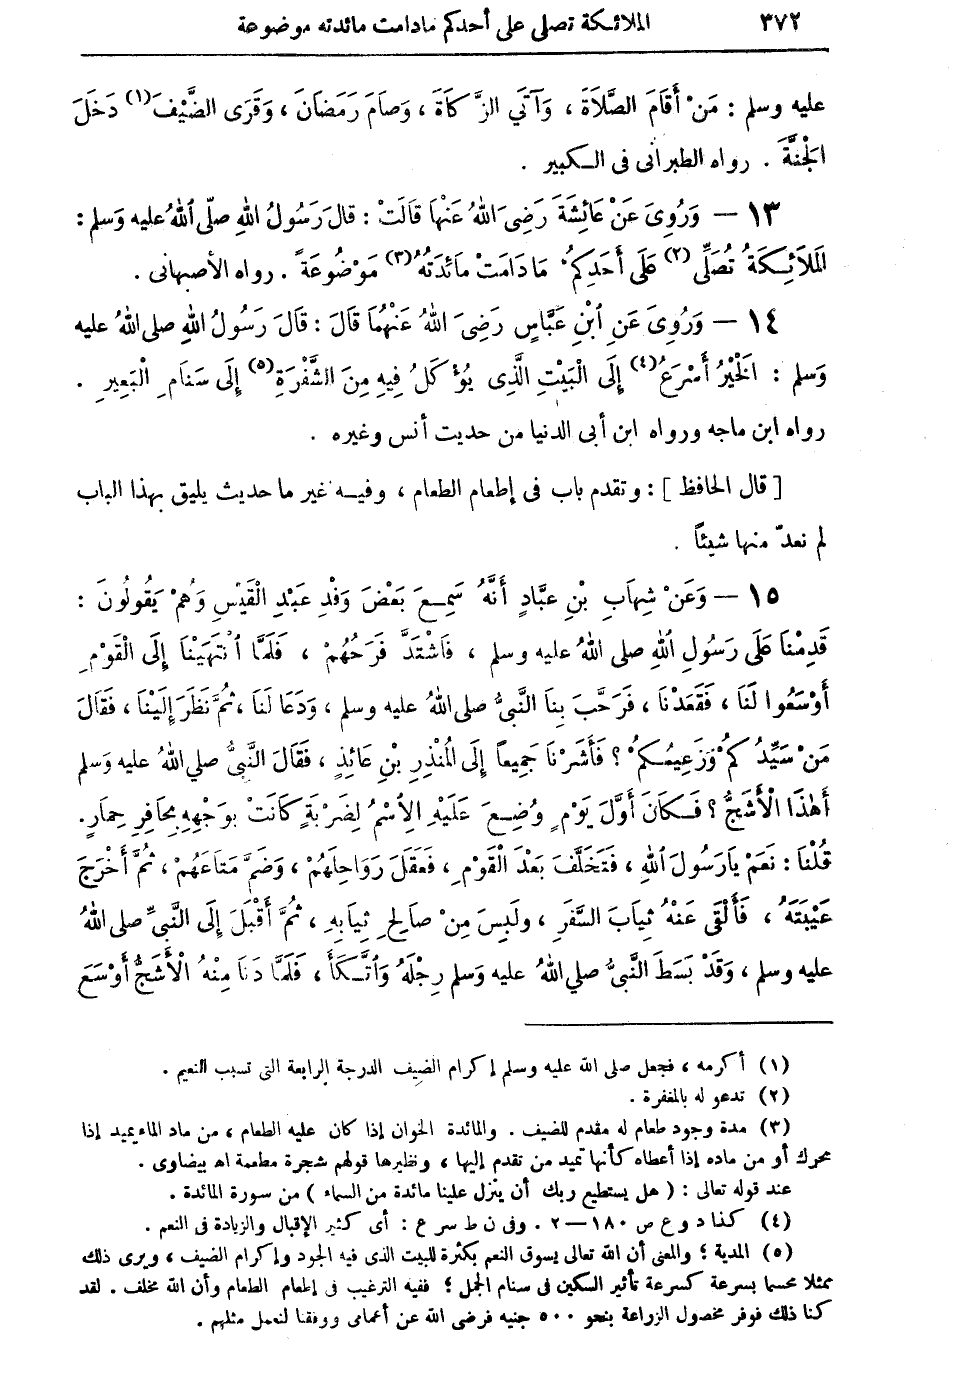 ٣٧٢ الملائكة تصلى على أحدكم مادامت مائدته موضوعة
عليه وسلم : مَنْ أَقَامَ الصَّلَاةَ ، وَآتَي الزَّكَاةَ ، وَصَامَ رَمَضَانَ ، وَقَرَى الضَّيْفَ (١) دَخَلَ
الْجَنَّةَ . رواه الطبرانى فى الكبير .
١٣ — وَرُوِىَ عَنْ عَائِشَةَ رَضِىَ اللهُ عَنْهَا قَالَتْ : قالَ رَسُولُ اللهِ صلّى اللهُ عليه وَسلم :
الْمَلَائِكَةُ تُصَلِّى (٢) عَلَى أَحَدِكُمْ مَا دَامَتْ مَائدَتُهُ (٣) مَوْضُوعَةً . رواه الأصبهانى .
١٤ — وَرُوِىَ عَنِ ابْنِ عَبَّاسٍ رَضِىَ اللهُ عَنْهُمَا قَالَ : قَالَ رَسُولُ اللهِ صلى اللهُ عليه
وَسلم : الْخَيْرُ أَسْرَعُ (٤) إِلَى الْبَيْتِ الَّذِى يُؤْكَلُ فِيهِ مِنَ الشَّفْرَةِ (٥) إِلَى سَنَامِ الْبَعِيرِ .
رواه ابن ماجه ورواه ابن أبى الدنيا من حديث أنس وغيره .
[ قال الحافظ ] : وتقدم باب فى إطعام الطعام ، وفيه غير ما حديث يليق بهذا الباب
لم نعدّ منها شيئاً .
١٥ — وَعَنْ شِهَابِ بْنِ عبَّادٍ أَنَّهُ سَمِعَ بَعْضَ وَفْدِ عَبْدِ الْقَيْسِ وَهُمْ يَقُولُونَ :
قَدِمْنَا عَلَى رَسُولِ اللهِ صلى اللهُ عليه وسلم ، فَاشْتَدَّ فَرَحُهُمْ ، فَلَمَّا انْتَهَيْنَا إِلَى الْقَوْمِ
أَوْسَعُوا لَنَا ، فَقَعَدْنَا ، فَرَحَّبَ بِنَا النَّبىُّ صلى اللهُ عليه وسلم ، وَدَعَا لَنَا ، ثُمَّ نَظَرَ إِلَيْنَا ، فَقَالَ
مَنْ سَيِّدُ كُمْ وَزَعِيمُكُمْ ؟ فَأَشَرْنَا جَمِيعاً إِلَى الْمُنْذِرِ بْنِ عَائِذٍ ، فَقَالَ النَّبىُّ صلى اللهُ عليه وَسلم
أَهٰذَا الْأَشَجُّ ؟ فَكَانَ أَوَّلَ يَوْمٍ وُضِعَ عَلَيْهِ الِاسْمُ لِضَرْبَةٍ كَانَتْ بِوَجْهِهِ بِحَافِرِ حِمَارٍ .
قُلْنَا : نَعَمْ يَارَسُولَ اللهِ ، فَتَخَلَّفَ بَعْدَ الْقَوْمِ ، فَعَقَلَ رَوَاحِلَهُمْ ، وَضَمَّ مَتَاعَهُمْ ، ثُمَّ أَخْرَجَ
عَيْبَتَهُ ، فَأَلْقَى عَنْهُ ثِيَابَ السَّفَرِ ، ولَبِسَ مِنْ صَالِحِ ثِيَابِهِ ، ثُمَّ أَقْبَلَ إِلَى النَّبىِّ صلى اللهُ
عليه وسلم ، وَقَدْ بَسَطَ النَّبىُّ صلى اللهُ عليه وَسلم رِجْلَهُ وَاتَّكَأَ ، فَلَمَّا دَنَا مِنْهُ الْأَشَجُّ أَوْسَعَ
(١) أكرمه ، فجعل صلى الله عليه وسلم إكرام الضيف الدرجة الرابعة التى تسبب النعيم .
(٢) تدعو له بالمغفرة .
(٣) مدة وجود طعام له مقدم للضيف . والمائدة الخوان إذا كان عليه الطعام ، من ماد الماء يميد إذا
تحرك أو من ماده إذا أعطاه كأنها تميد من تقدم إليها ، ونظيرها قولهم شجرة مطعمة اه بيضاوى .
عند قوله تعالى : ( هل يستطيع ربك أن ينزل علينا مائدة من السماء ) من سورة المائدة .
(٤) كذا د وع ص ١٨٠ — ٢ . وفى ن ط سرع : أى كثير الإقبال والزيادة فى النعم .
(٥) المدية ؛ والمعنى أن الله تعالى يسوق النعم بكثرة للبيت الذى فيه الجود وإكرام الضيف ، ويرى ذلك
ممثلا محسا بسرعة كسرعة تأثير السكين فى سنام الجمل ؛ ففيه الترغيب فى إطعام الطعام وأن الله مخلف . لقد
كنا ذلك فوفر محصول الزراعة بنحو ٥٠٠ جنيه فرضى الله عن أعمامى ووفقنا لنعمل مثلهم .